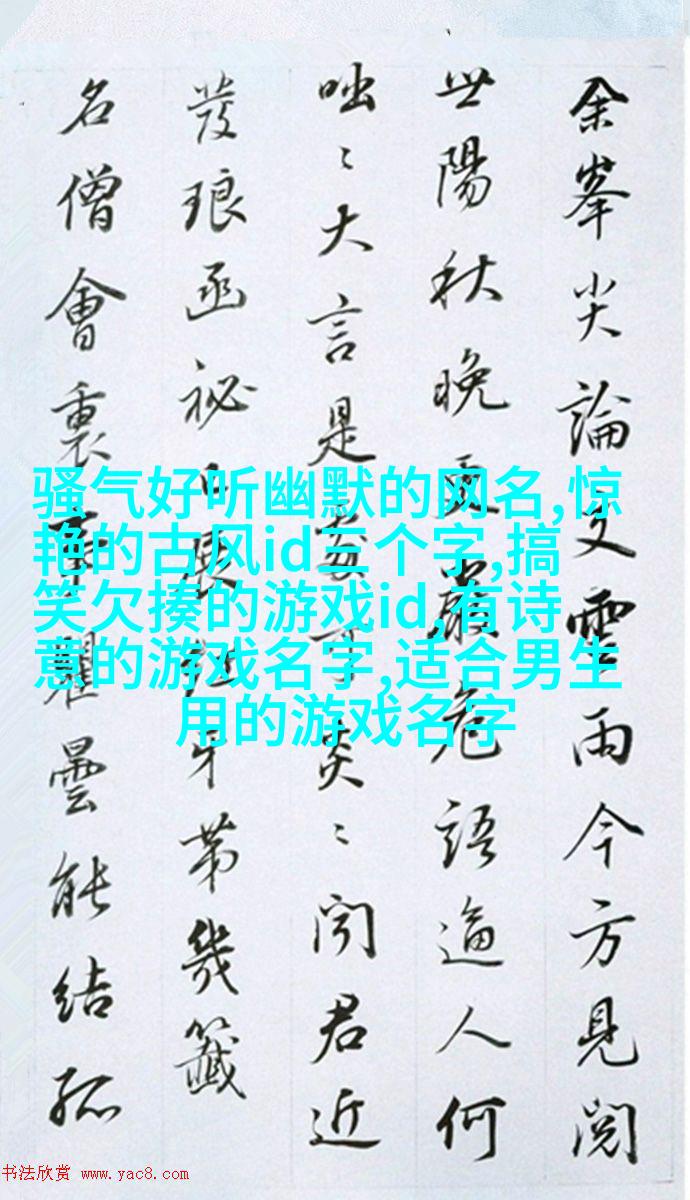 余峯尖論文雲雨今方見閱
世陽秋晚更嚴危語逼人何
咄々大言是事炎々闻君近
發琅函祕牙第幾籤
名僧會裏瞿曇能結孤
骚气好听幽默的网名,惊
艳的古风id三个字,搞
笑欠揍的游戏id,有诗
意的游戏名字,适合男生
用的游戏名字
书法欣赏 www.yac8.com